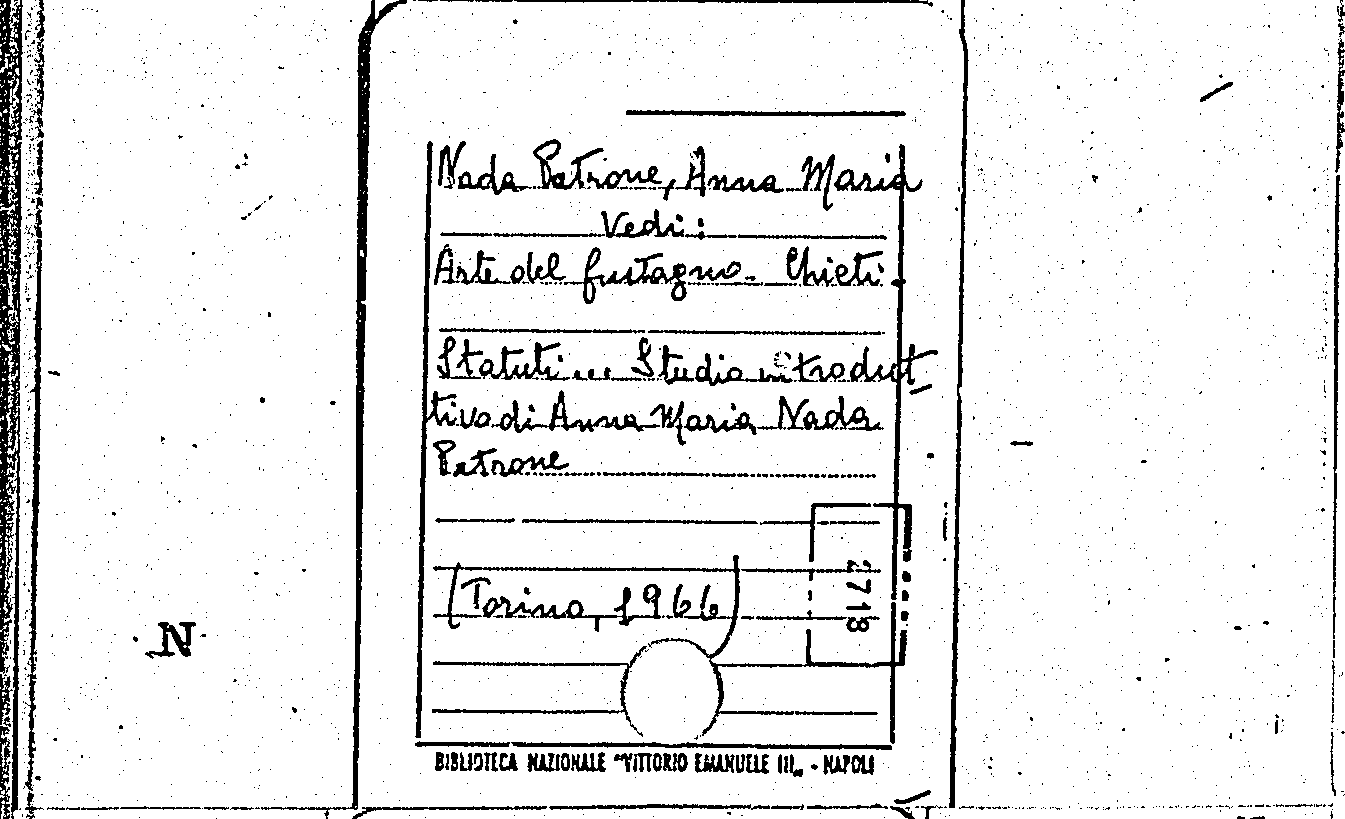 Nada Patrone, Anna Maria
Vedi:
Arte del fustagno - Chieri -
Statuti... Studio introdut
tivo di Anna Maria Nada
Patrone
(Torino, 1966)
2718
N
BIBLIOTECA NAZIONALE "VITTORIO EMANUELE III„ - NAPOLI